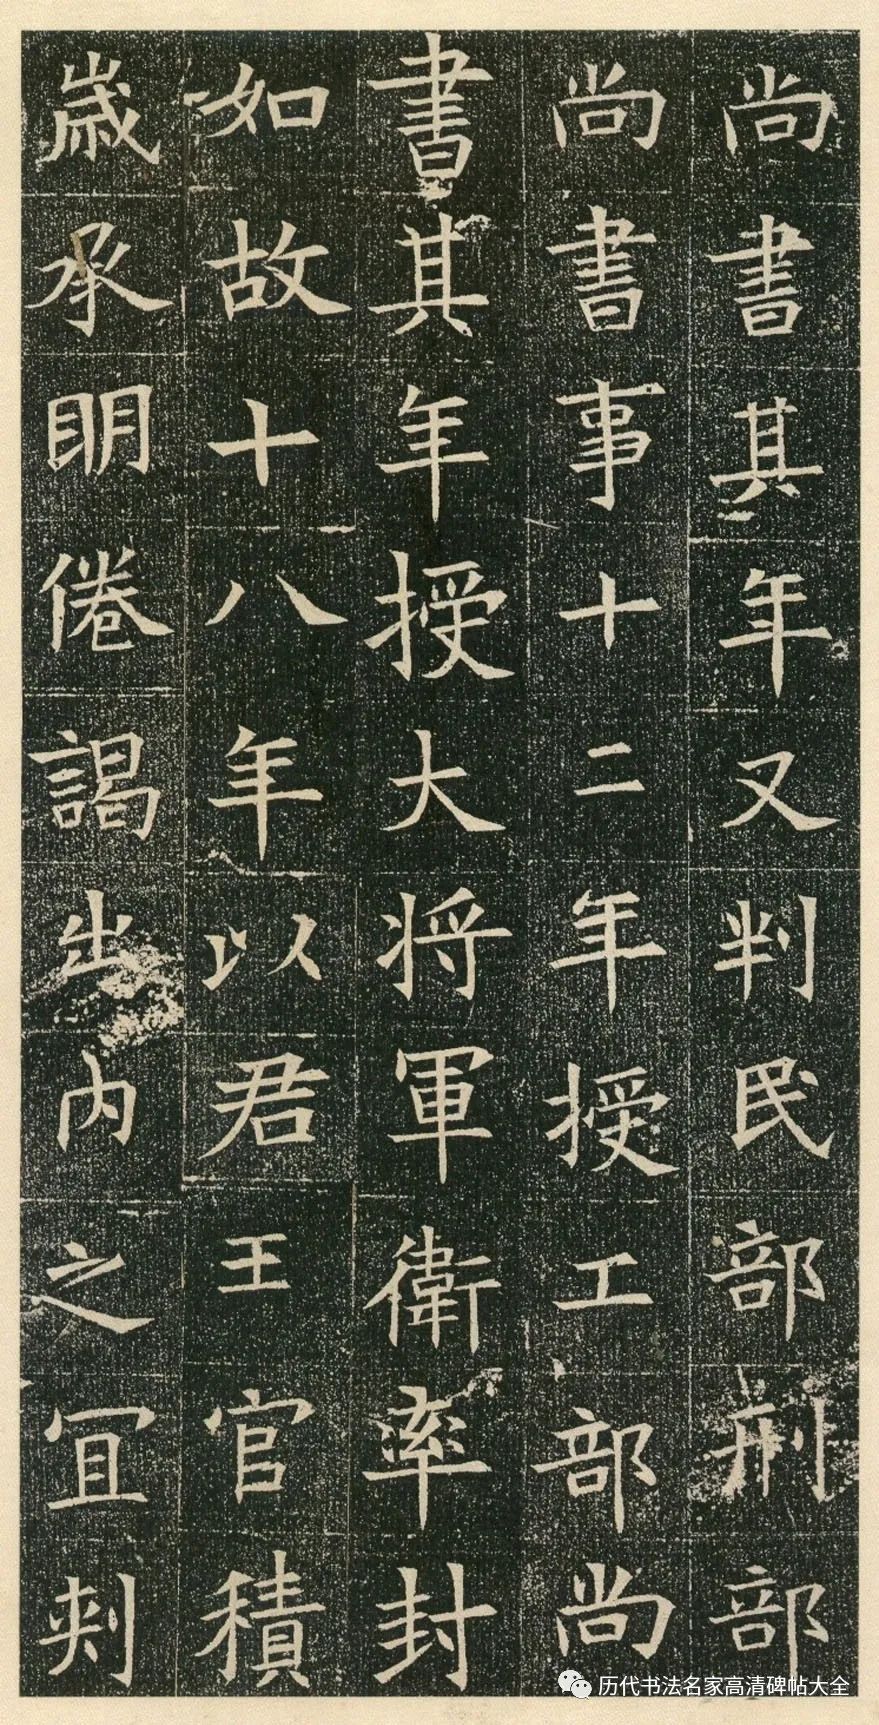 尚書其年又判民部刑部
尚書事十二年授工部尚
書其年授大将軍衛率封
如故十八年以君王官積
歳承明倦謁出内之冝刾
历代书法名家高清碑帖大全